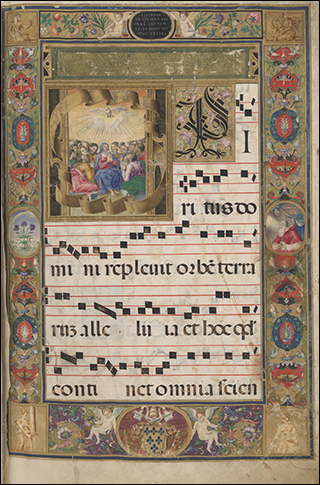 SPI
ritus do
mi ni repleuit orbē terra
ruz alle lu ia et hoc qd
conti net omnia scien